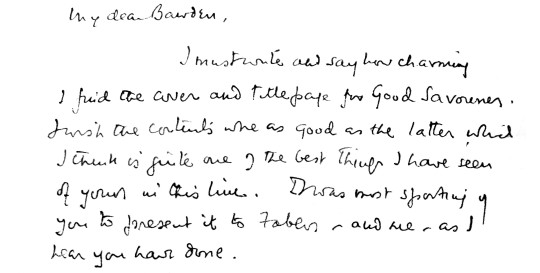 My dear Bawden,
I must write and say how charming
I find the cover and title page for Good Savouries.
I wish the contents were as good as the latter which
I think is quite one of the best things I have seen
of yours in this line. It was most sporting of
you to present it to Fabers – and me – as I
hear you have done.